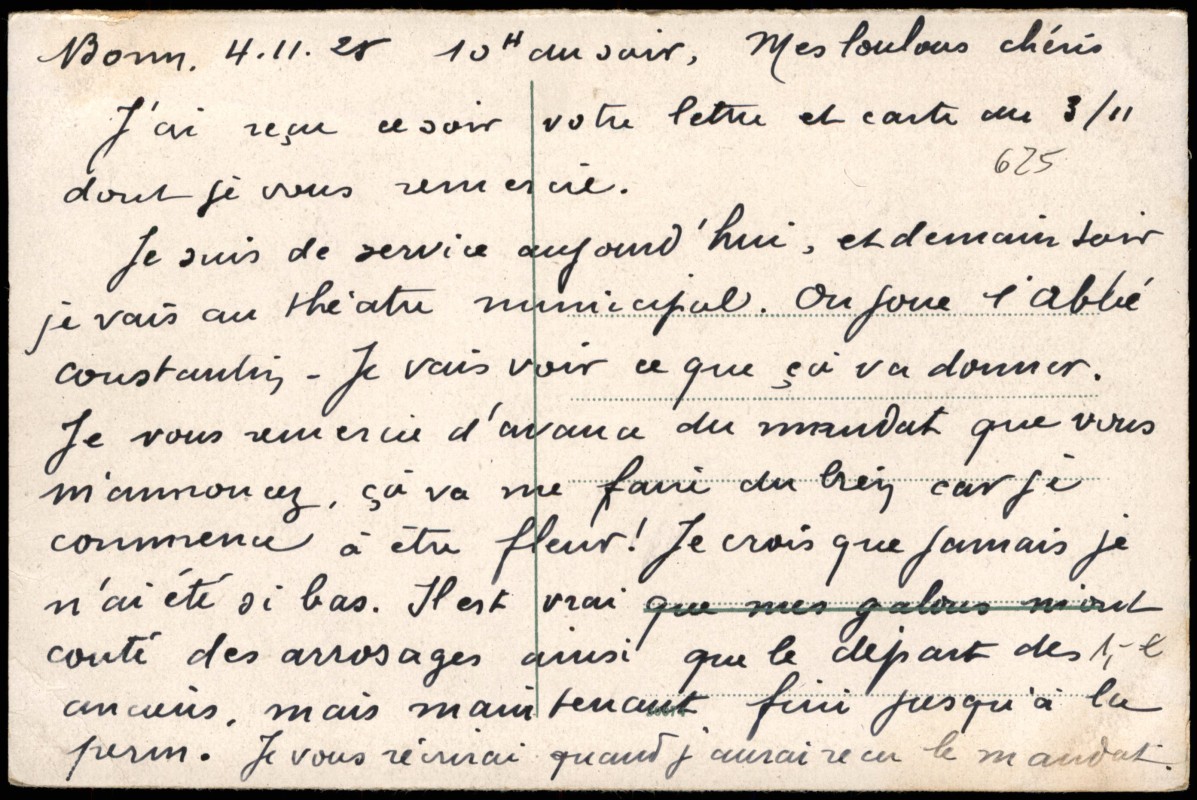 Bonn. 4.11.28 10H du soir, Mes loulous chéris
J'ai reçu ce soir votre lettre et carte du 3/11
625
dont je vous remercie.
Je suis de service aujourd'hui, et demain soir
je vais au théatre municipal. On joue l'Abbé
constantin - Je vais voir ce que çà va donner.
Je vous remercie d'avance du mandat que vous
m'annoncez, çà va me faire du bien car je
commence à être fleur! Je crois que jamais je
n'ai été si bas. Il est vrai que mes galons m'ont
couté des arrosages ainsi que le départ des
1,-€
anciens, mais maintenant fini jusqu'à la
perm. Je vous récrirai quand j'aurai recu le mandat.